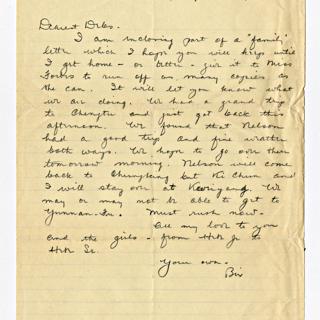 Dearest Debs.
I am inclosing part of a "family"
letter which I hope you will keep until
I get home - or better - give it to Miss
to run off as many copies as
she can. It will let you know what
we are doing. We had a grand trip
to Chengtu and just got back this
afternoon. We found that Nelson
had a good trip and fine weather
both ways. We hope to go over there
tomorrow morning. Nelson will come
back to Chungking but the Chim and
I will stay over at Kweiyang. We
may or may not be able to get to
Yunnan-fu. Must rush now.
All my love to you
and the girls - from Hsk Jr to
Hsk Sr.
Your own -
Bix